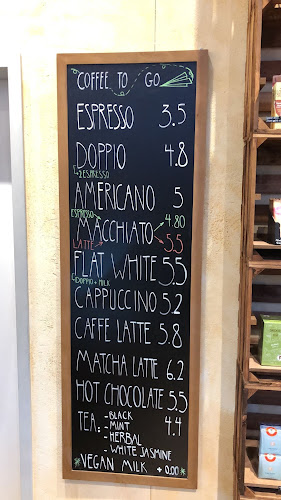 COFFEE TO GO
ESPRESSO 3.5
DOPPIO 4.8
2 ESPRESSO
AMERICANO 5
ESPRESSO 4.80
MACCHIATO
LATTE 5.5
FLAT WHITE 5.5
DOPPIO + MILK
CAPPUCCINO 5.2
CAFFE LATTE 5.8
MATCHA LATTE 6.2
HOT CHOCOLATE 5.5
TEA: - BLACK 4.4
- MINT
- HERBAL
- WHITE JASMINE
VEGAN MILK + 0.00